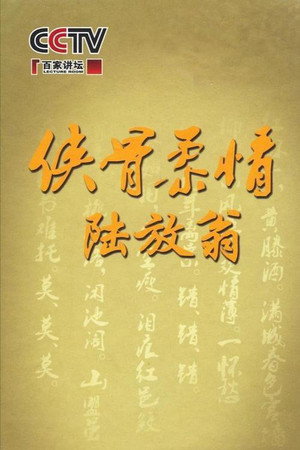 CCTV
百家讲坛
LECTURE ROOM
侠骨柔情
陆放翁
黄滕酒。满城春色宫墙
风恶。欢情薄。一怀愁
索。错、错、错。
空瘦。泪痕红浥鲛
闲池阁。山盟虽
难托。莫、莫、莫。